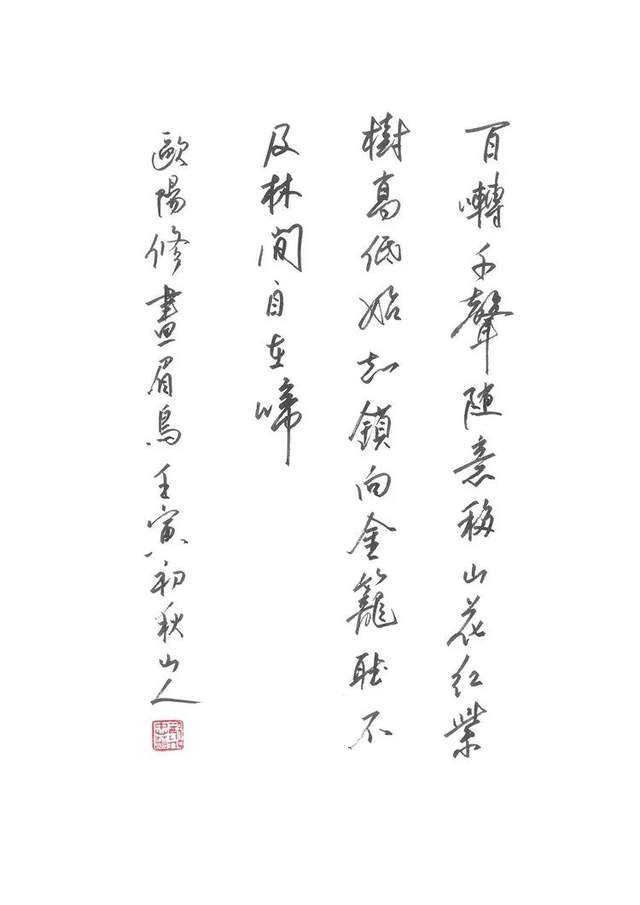 百囀千聲隨意移山花紅紫
樹高低始知鎖向金籠聽不
及林間自在啼
歐陽修畫眉鳥壬寅初秋山人